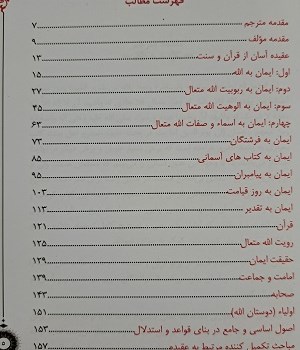 فهرست مطالب
مقدمه مترجم ........ ۷
مقدمه مؤلف ........ ۹
عقیده آسان از قرآن و سنت ........ ۱۳
اول: ایمان به الله ........ ۱۵
دوم: ایمان به ربوبیت الله متعال ........ ۲۷
سوم: ایمان به الوهیت الله متعال ........ ۴۵
چهارم: ایمان به اسماء و صفات الله متعال ........ ۶۳
ایمان به فرشتگان ........ ۷۳
ایمان به کتاب های آسمانی ........ ۸۵
ایمان به پیامبران ........ ۹۵
ایمان به روز قیامت ........ ۱۰۳
ایمان به تقدیر ........ ۱۱۳
قرآن ........ ۱۲۱
رویت الله متعال ........ ۱۲۵
حقیقت ایمان ........ ۱۲۹
امامت و جماعت ........ ۱۳۹
صحابه ........ ۱۴۳
اولیاء (دوستان الله) ........ ۱۵۱
اصول اساسی و جامع در بنای قواعد و استدلال ........ ۱۵۳
مباحث تکمیل کننده مرتبط به عقیده ........ ۱۵۷
۵